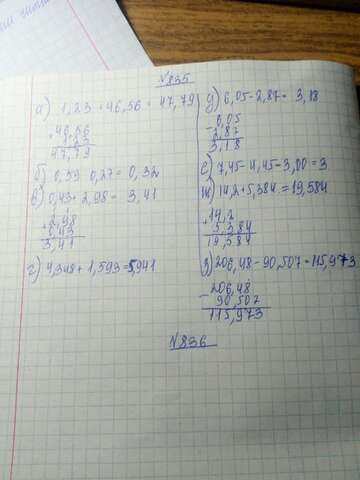 №835
а) 1,23 + 46,56 = 47,79
+46,56
1,23
47,79
б) 0,59 0,27 = 0,32
в) 0,43 + 2,98 = 3,41
2,98
+0,43
3,41
г) 4,348 + 1,593 = 5,941
д) 6,05 - 2,87 = 3,18
6,05
-2,87
3,18
е) 7,45 - 4,45 = 3,00 = 3
ж) 14,2 + 5,384 = 19,584
+14,2
5,384
19,584
з) 206,48 - 90,507 = 115,973
-206,48
90,507
115,973
№836